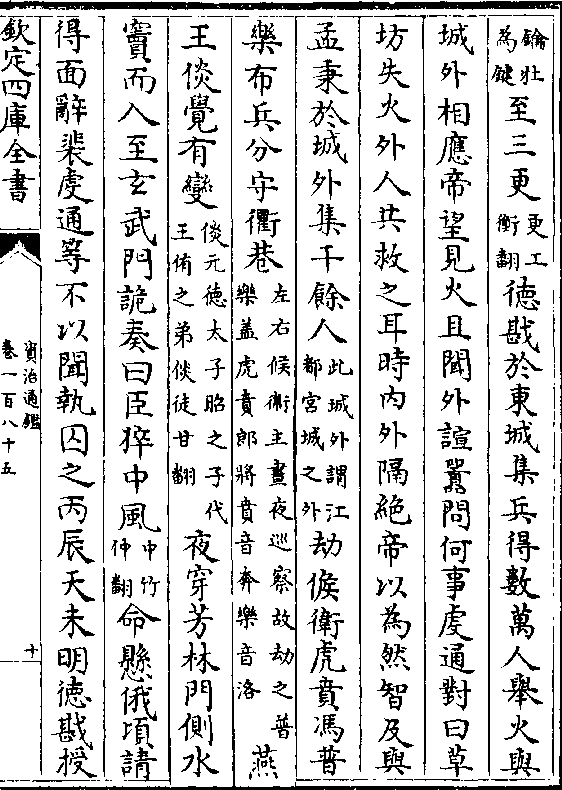 鑰壯為鍵至三更更工衡翻德戡於東城集兵得數萬人舉火與
城外相應帝望見火且聞外諠囂問何事虔通對曰草
坊失火外人共救之耳時内外隔絶帝以為然智及與
孟秉於城外集千餘人此城外謂江都宮城之外刼候衛虎賁馮普
樂布兵分守衢巷左右候衛主晝夜巡察故劫之普樂盖虎賁郎將賁音奔樂音洛燕
王倓覺有變倓元德太子昭之子代王侑之弟倓徒甘翻夜穿芳林門側水
竇而入至玄武門詭奏曰臣猝中風中竹仲翻命懸俄頃請
得面辭裴虔通等不以聞執囚之丙辰天未明德戡授
欽定四庫全書
資治通鑑
卷一百八十五
十